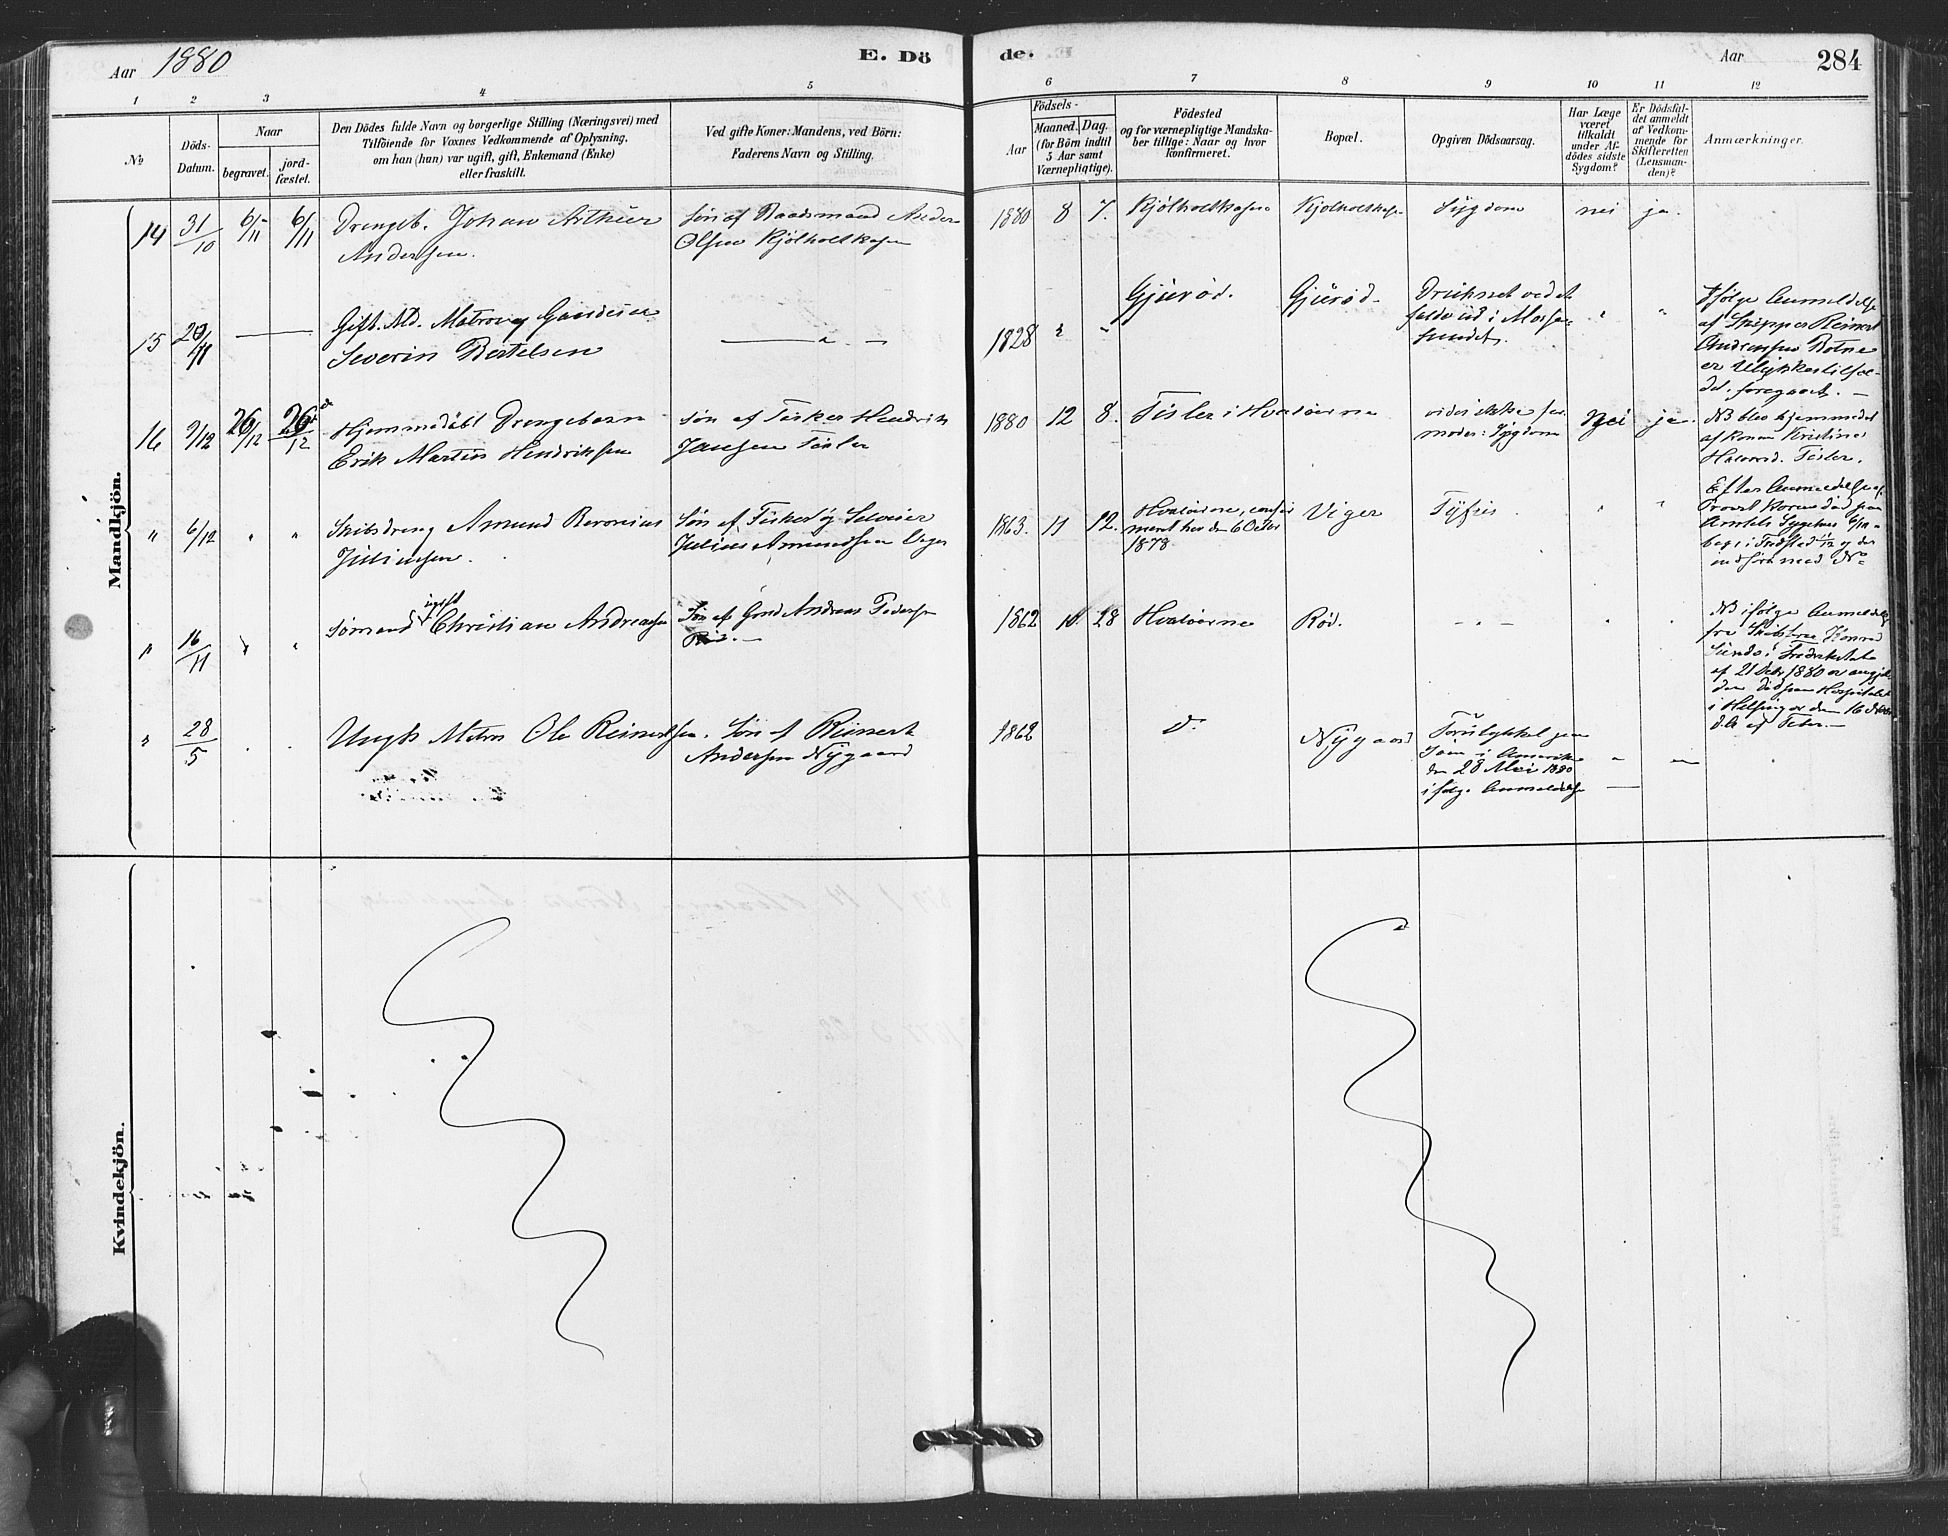 Aar 1880
E. Dö
de.
Aar
284
1 2 3 4 5 6 7 8 9 10 11 12
№
Döds-
Datum.
Naar
begravet.
jord-
fæstet.
Den Dödes fulde Navn og borgerlige Stilling (Næringsvei) med
Tilföiende for Voxnes Vedkommende af Oplysning.
om han (hun) var ugift, gift, Enkemand (Enke)
eller fraskilt.
Ved gifte Koner: Mandens, ved Börn:
Faderens Navn og Stilling.
Födsels-
Aar
Maaned. Dag.
(for Börn indtil
5 Aar samt
Værnepligtige).
Födested
og for værnepligtige Mandska-
ber tillige: Naar og hvor
konfirmeret.
Bopæl.
Opgiven Dödsaarsag.
Har Læge
været
tilkaldt
under Af-
dödes sidste
Sygdom?
Er Dödsfal-
det anmeldt
af Vedkom-
mende for
Skifteretten
(Lensman-
den)?
Anmærkninger.
Mandkjön.
14 31/10 6/11 6/11 Drengeb. Johan Arthur
Andersen.
Søn af Baadsmand Anders
Olsen Kjölholtkasen
1880 8 7. Kjölholtkasen Kjolholtkasen Sygdom nei ja.
15 29/11 Gift. Md. Matros
Severin Bertelsen
1828 " " Gjurød. Gjurød. Druknet ved at
falde ud i Mosse-
sundet. " "
Ifølge Anmeldelse
af Skipper Reinert
Andersen Botne
er Ulykkestilfæl-
det foregaaet. —
16 9/12 26/12 26/12 Hjemmedøbt Drengebarn
Erik Martin Hendriksen
Søn af Fisker Hendrik
Jansen Tisler
1880 12 8. Tisler i Hvaløerne Nei ja.
NB blev hjemmedøbt
af Konen Kristine
Halvorsd. Tisler.
" 6/12 " " Skibsdreng Amund
Juliussen.
Søn af Fisker og Selveier
Julius Amundsen Viger
1863. 11 12. Hvaløerne, confir
meret her den 6 Octbr
1878. Viger Tyfus " "
Efter Anmeldelse af
Provst død paa
Sygehus 6/12
i Fredstad 11/12 og der
" 16/11 " " Sømand ugift Christian Andreasen
Søn af Gmd Andreas Pedersen
Rød. —
1862 10. 28 Hvaløerne Rød. — " —
NB ifølge Anmeldelse
fra
Sundø i Fredrikstad
af 21 Decbr 1880 er
den død paa Hospitalet
i Helsingør den 16
" 28/5 Ungk. Matros Ole Reinertsen.
Søn af Reinert
Andersen Nygaard
1862 d. Nygaard Forulykket
i Amerika
den 28 Mai 1880
ifølge Anmeldelse
Kvindekjön.